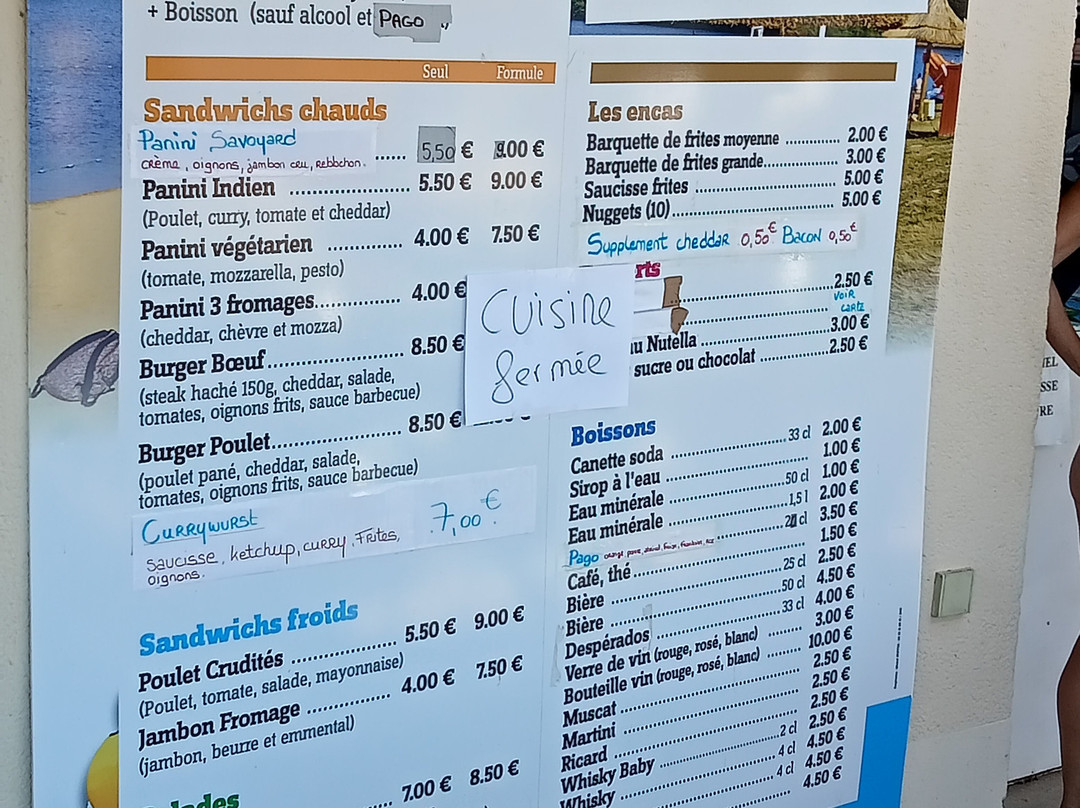 + Boisson (sauf alcool et PAGO
Seul Formule
Sandwichs chauds
Panini Savoyard
crème, oignons, jambon cru, Rebbchon. ...... 5,50 € 9.00 €
Panini Indien .................... 5.50 € 9.00 €
(Poulet, curry, tomate et cheddar)
Panini végétarien ............ 4.00 € 7.50 €
(tomate, mozzarella, pesto)
Panini 3 fromages.............. 4.00 €
(cheddar, chèvre et mozza)
Burger Bœuf...................... 8.50 €
(steak haché 150g, cheddar, salade,
tomates, oignons frits, sauce barbecue)
Burger Poulet..................... 8.50 €
(poulet pané, cheddar, salade,
tomates, oignons frits, sauce barbecue)
Currywurst 7,00€
saucisse, ketchup, curry, Frites,
oignons.
Sandwichs froids
Poulet Crudités .................. 5.50 € 9.00 €
(Poulet, tomate, salade, mayonnaise)
Jambon Fromage .............. 4.00 € 7.50 €
(jambon, beurre et emmental)
7.00 € 8.50 €
Cuisine
fermée
Les encas
Barquette de frites moyenne ........... 2.00 €
Barquette de frites grande............... 3.00 €
Saucisse frites ............................ 5.00 €
Nuggets (10)................................ 5.00 €
Supplement cheddar 0,50€ Bacon 0,50€
rts
2.50 €
VOIR
CARTE
u Nutella ........................ 3.00 €
sucre ou chocolat ............... 2.50 €
Boissons
Canette soda ...................... 33 cl 2.00 €
Sirop à l'eau ............................ 1.00 €
Eau minérale ..................... 50 cl 1.00 €
Eau minérale ..................... 1,5 l 2.00 €
Pago 20 cl 3.50 €
Café, thé.................................. 1.50 €
Bière ............................... 25 cl 2.50 €
Bière ............................... 50 cl 4.50 €
Despérados ........................ 33 cl 4.00 €
Verre de vin (rouge, rosé, blanc) ........ 3.00 €
Bouteille vin (rouge, rosé, blanc) ........ 10.00 €
Muscat .................................... 2.50 €
Martini .................................... 2.50 €
Ricard .............................. 2 cl 2.50 €
Whisky Baby ....................... 2 cl 2.50 €
Whisky ............................. 4 cl 4.50 €
4 cl 4.50 €
4.50 €